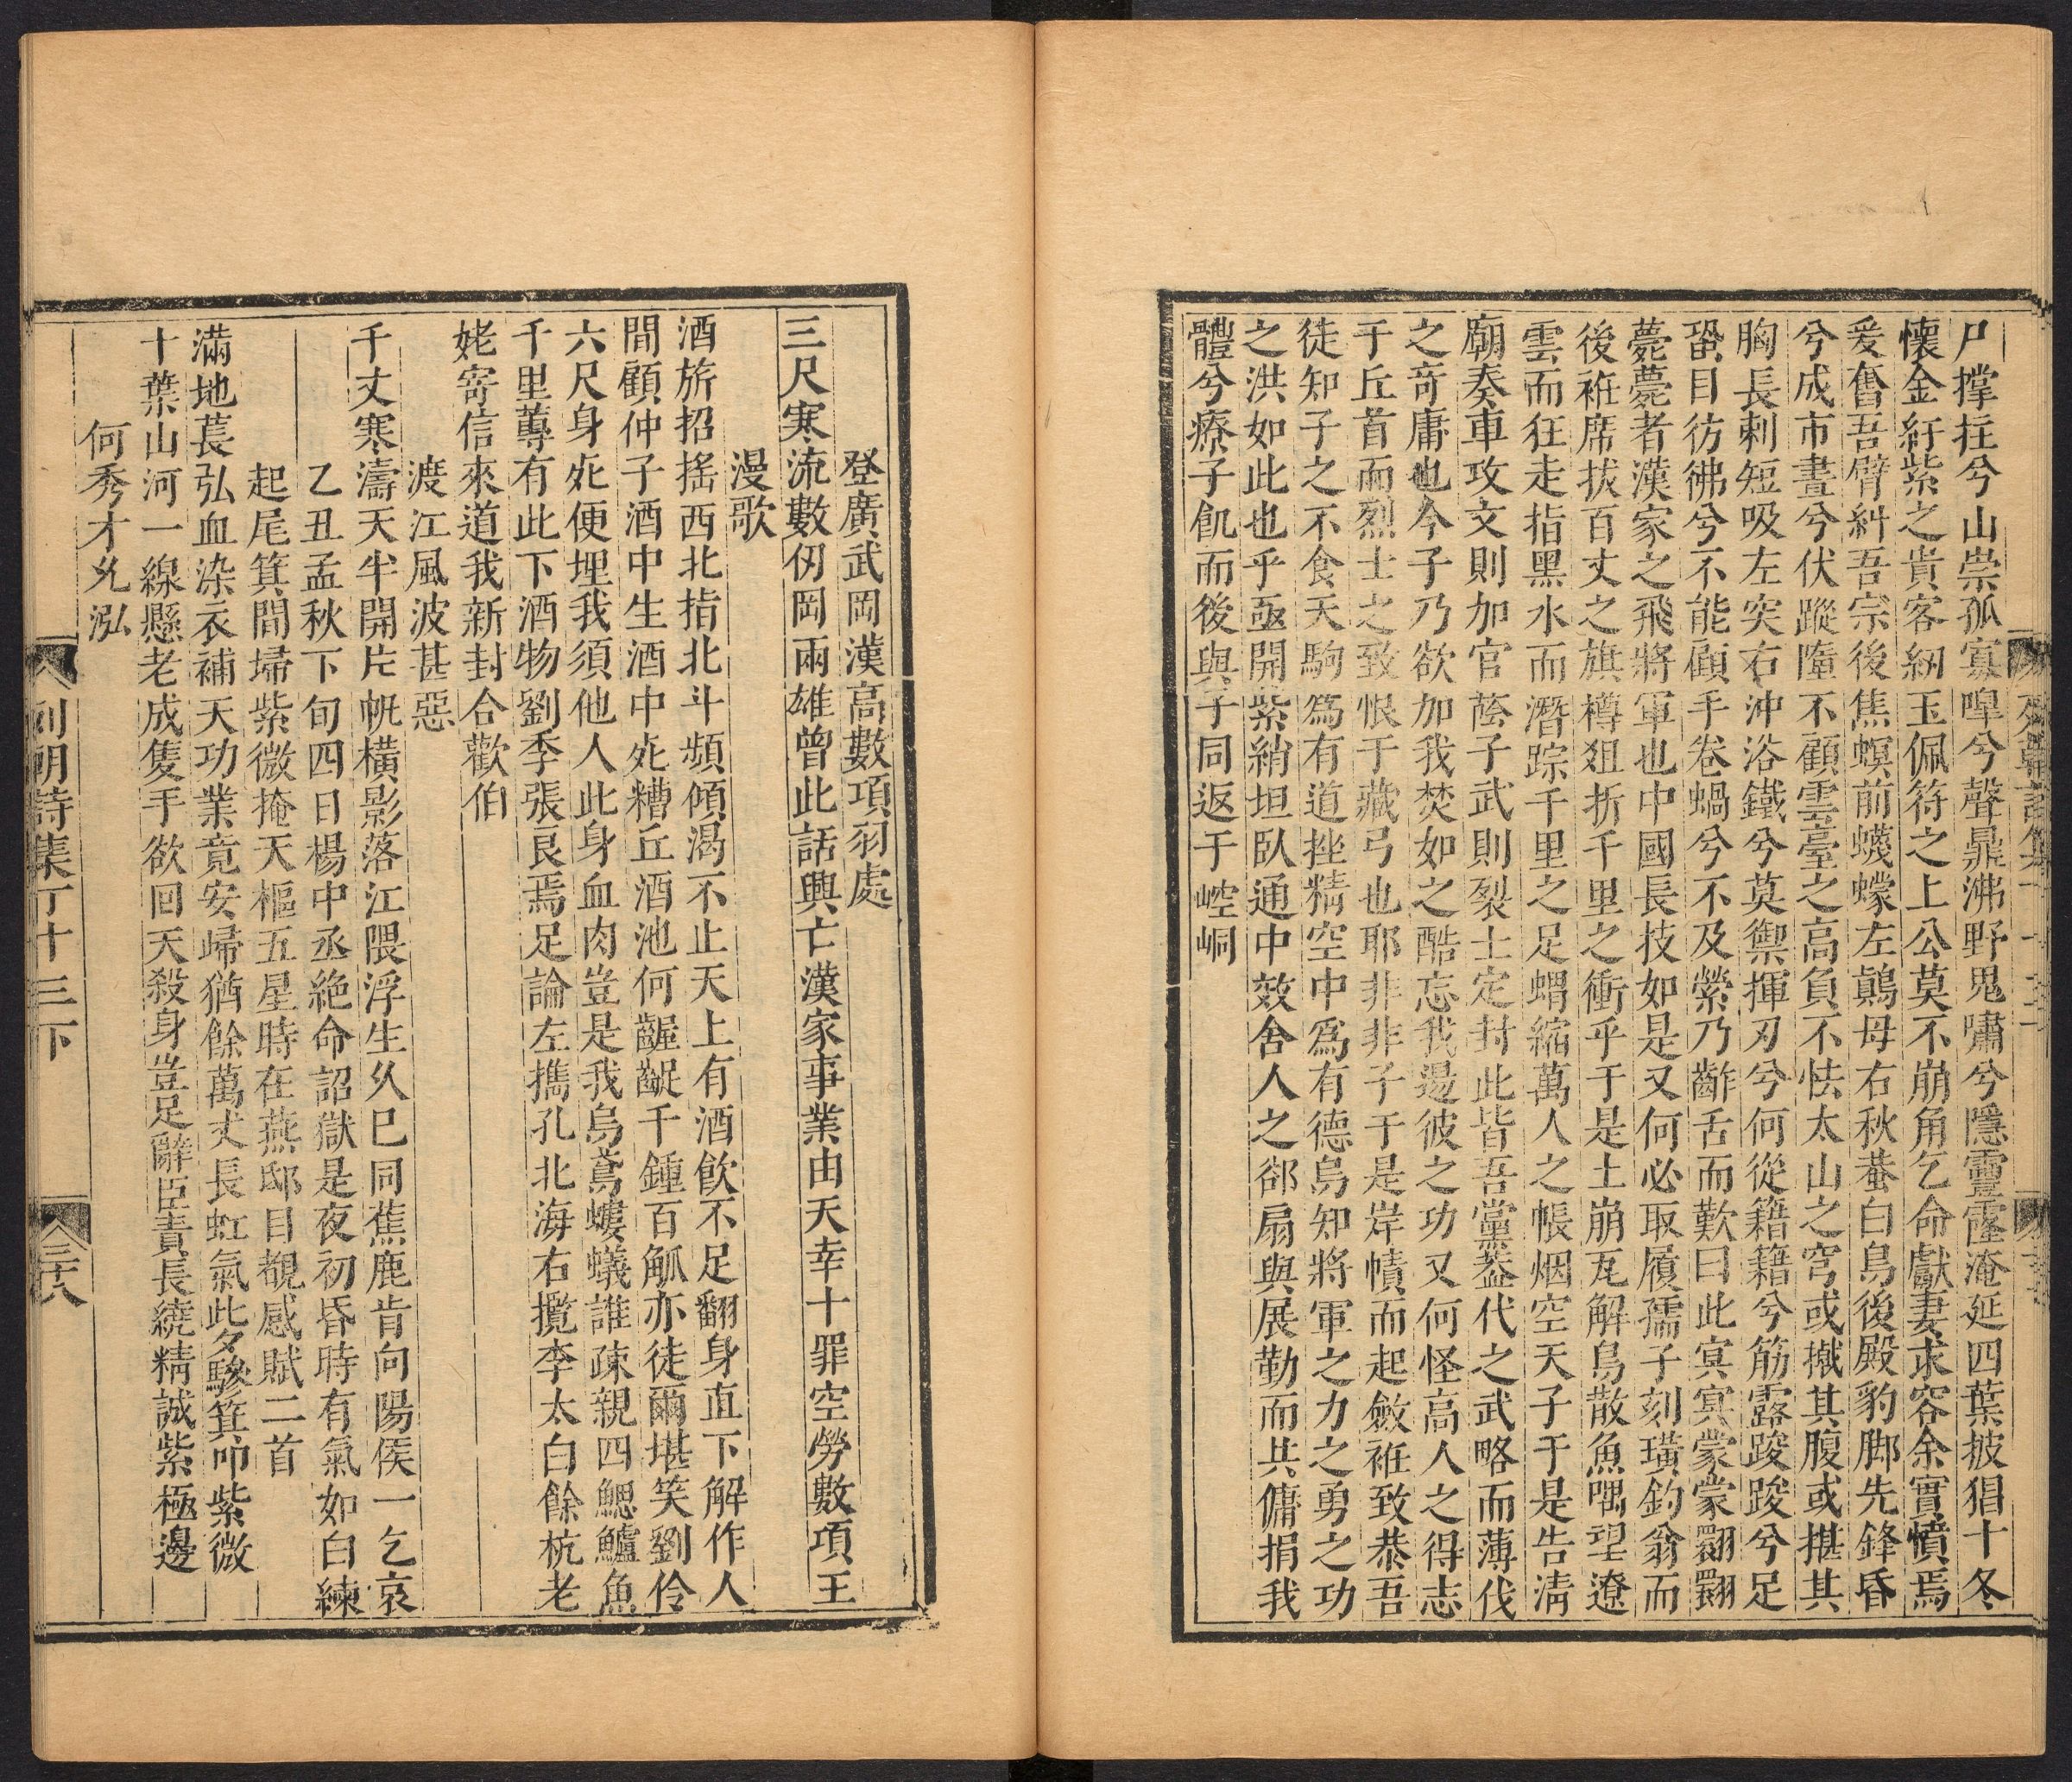 尸撐拄兮山崇孤寡嘷兮聲鼎沸野鬼嘯兮隱霻霳淹延四葉披猖十冬
懷金紆紫之貴客紉玉佩符之上公莫不崩角乞命獻妻求容余實憤焉
爰奮吾臂糾吾宗後焦螟前蠛蠓左鷏母右秋蜚白鳥後殿豹脚先鋒昏
兮成市晝兮伏蹤墮不顧雲臺之高負不怯太山之穹或摵其腹或揕其
胸長刺短吸左突右沖浴鐵兮莫禦揮刃兮何從籍籍兮筋露踆踆兮足
蛩目彷彿兮不能顧手卷蝸兮不及縈乃齰舌而歎曰此冥冥蒙蒙翾翾
薨薨者漢家之飛將軍也中國長技如是又何必取履孺子刻璜釣翁而
後袵席拔百丈之旗樽爼折千里之衝乎于是土崩瓦解鳥散魚喁望遼
雲而狂走指黑水而潛踪千里之足蝟縮萬人之帳烟空天子于是告淸
廟奏車攻文則加官蔭子武則裂土定封此皆吾黨葢代之武略而薄伐
之竒庸也今子乃欲加我焚如之酷忘我盪彼之功又何怪高人之得志
于丘首而烈士之致恨于藏弓也耶非非子于是岸幘而起斂袵致恭吾
徒知子之不食天駒爲有道挫精空中爲有德烏知將軍之力之勇之功
之洪如此也乎亟開紫綃坦臥通中效舍人之郤扇與展勤而共傭捐我
體兮療子飢而後與子同返于崆峒
登廣武岡漢高數項羽處
三尺寒流數仞岡兩雄曾此話興亡漢家事業由天幸十罪空勞數項王
漫歌
酒旂招搖西北指北斗頻傾渴不止天上有酒飮不足翻身直下解作人
間顧仲子酒中生酒中死糟丘酒池何齷齪千鍾百觚亦徒爾堪笑劉伶
六尺身死便埋我須他人此身血肉豈是我烏鳶螻蟻誰疎親四鰓鱸魚
千里蓴有此下酒物劉季張良焉足論左擕孔北海右攬李太白餘杭老
姥寄信來道我新封合歡伯
渡江風波甚惡
千丈寒濤天半開片帆橫影落江隈浮生久巳同蕉鹿肯向陽侯一乞哀
乙丑孟秋下旬四日楊中丞絶命詔獄是夜初昏時有氣如白練
起尾箕間埽紫微掩天樞五星時在燕邸目覩感賦二首
滿地萇弘血染衣補天功業竟安歸猶餘萬丈長虹氣此夕驂箕叩紫微
十葉山河一線懸老成隻手欲回天殺身豈足辭臣責長繞精誠紫極邊
何秀才允泓
列朝詩集丁十三下
三十八